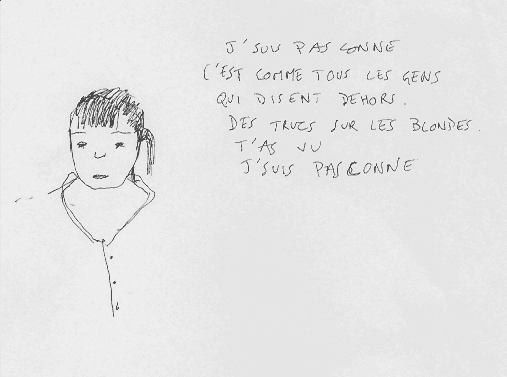 J'SUIS PAS CONNE
C'EST COMME TOUS LES GENS
QUI DISENT DEHORS.
DES TRUCS SUR LES BLONDES.
T'AS VU
J'SUIS PAS CONNE